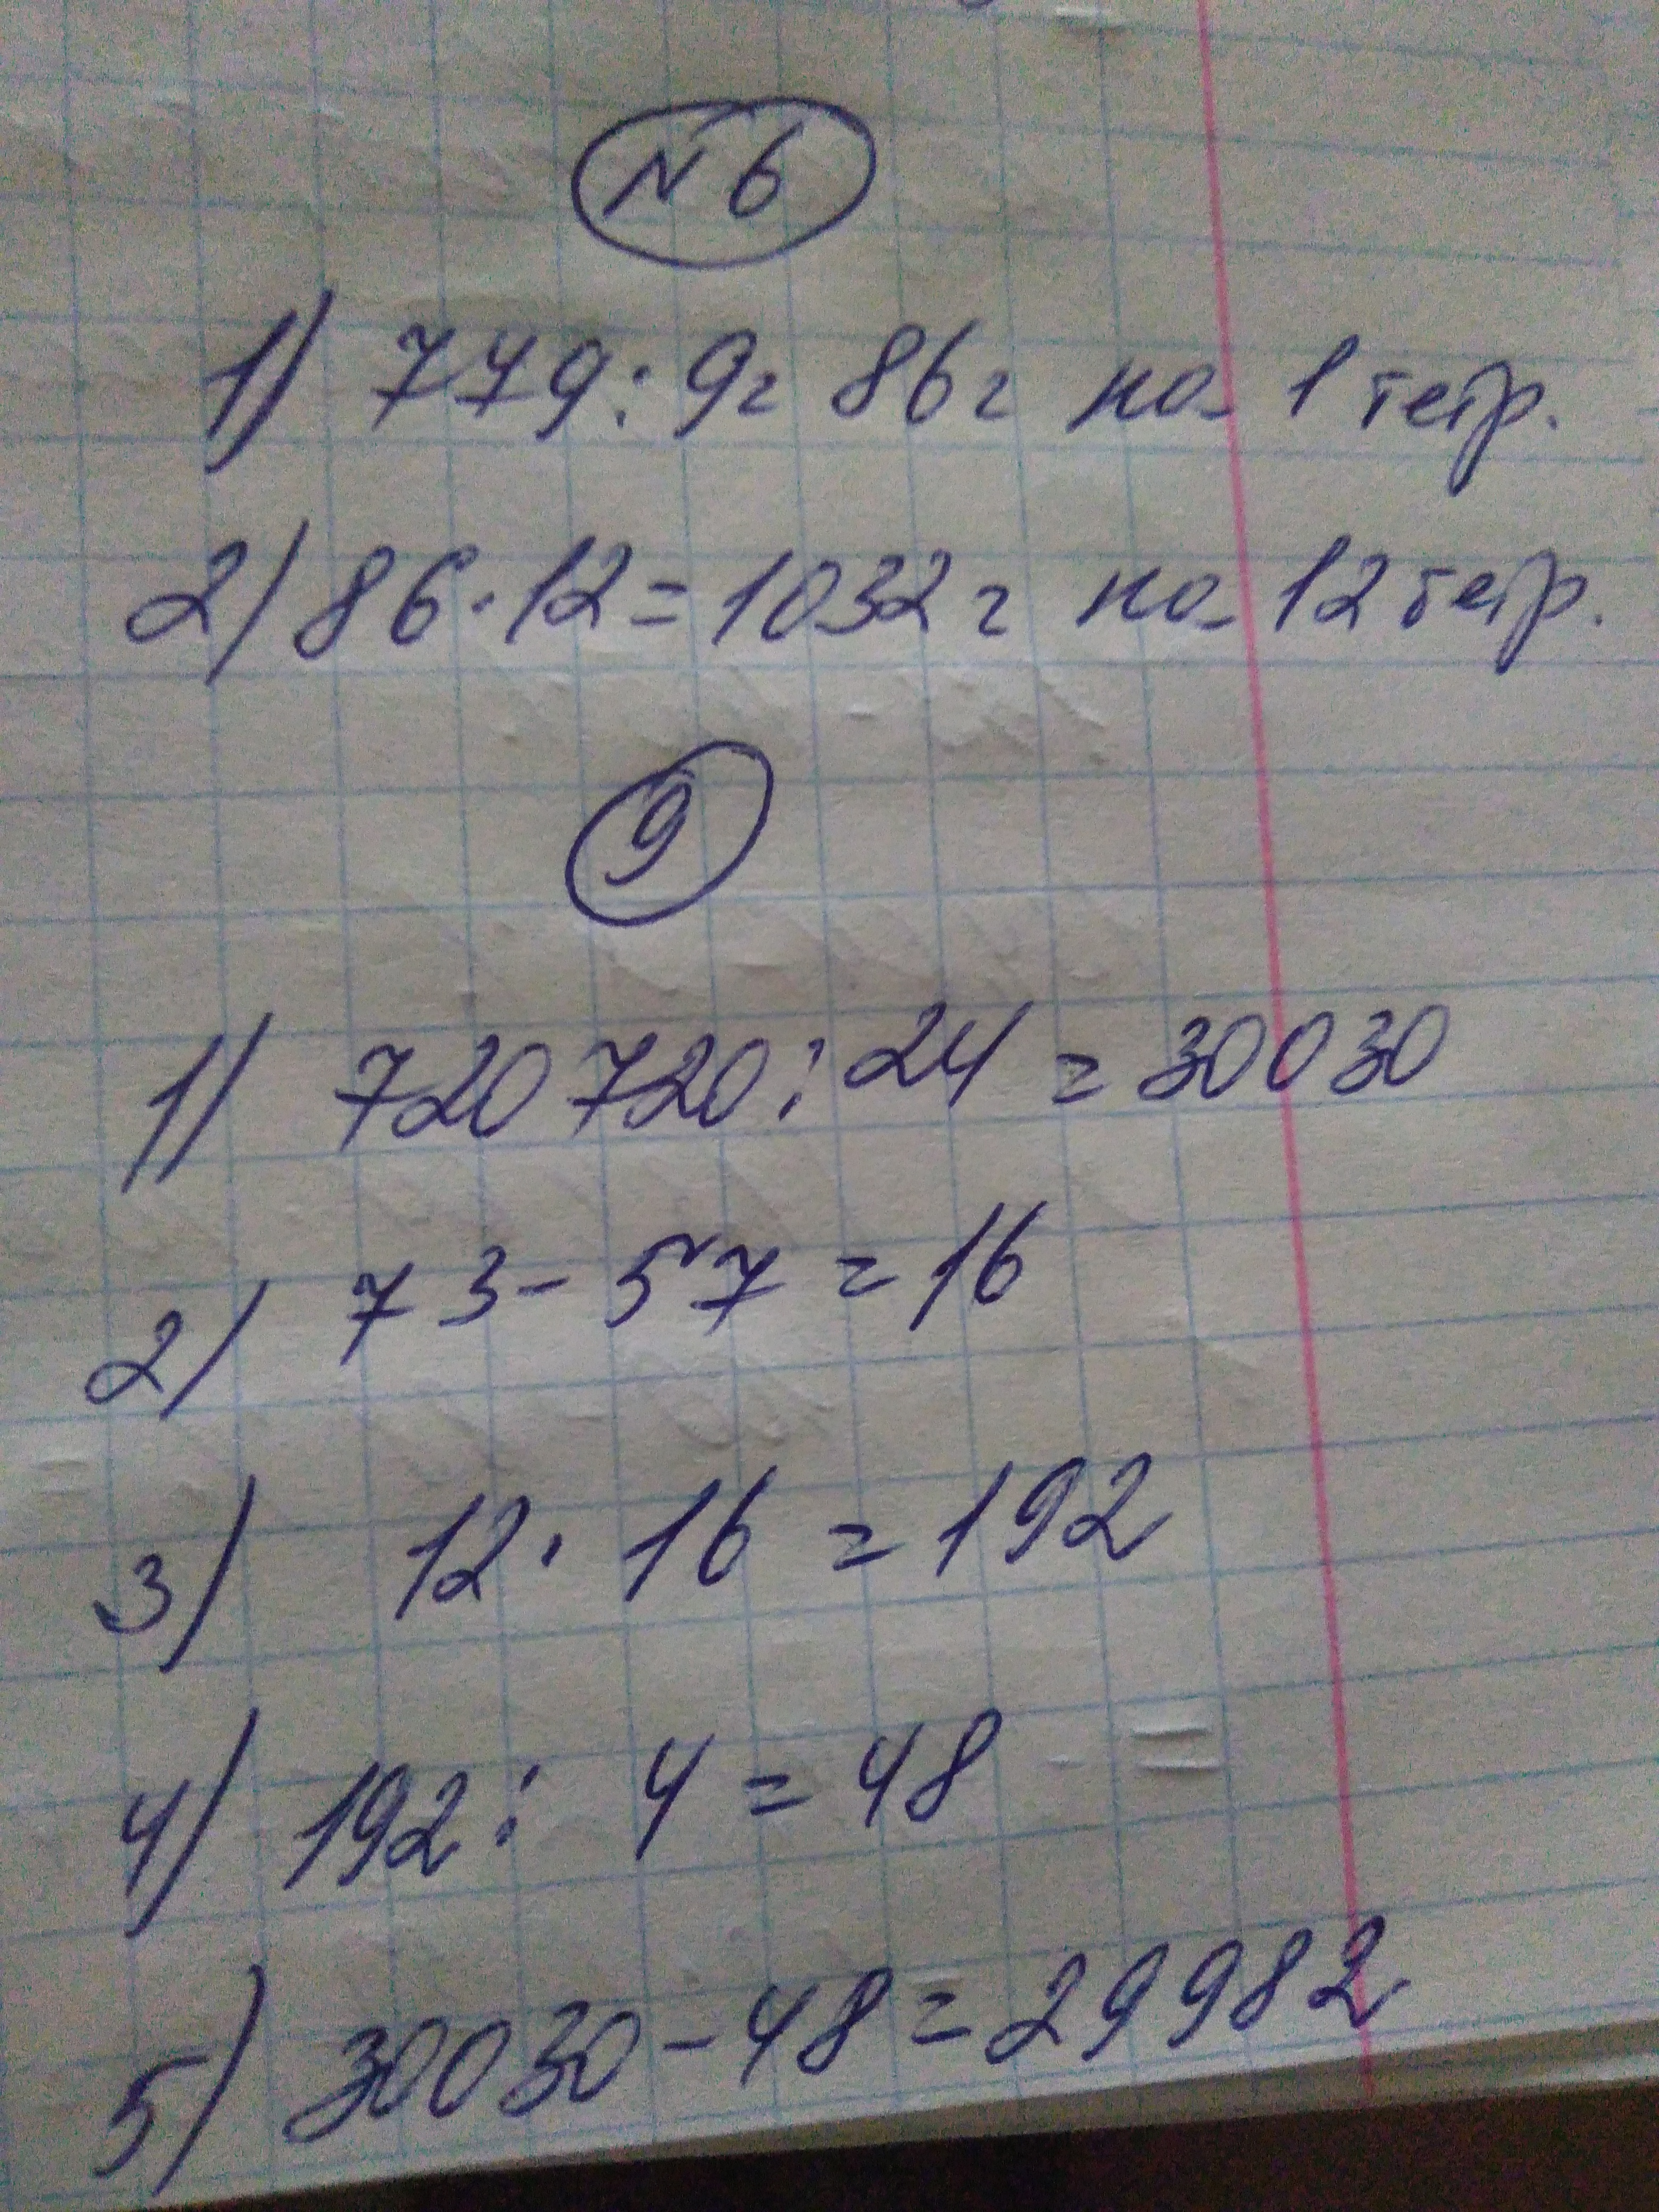 N 6
1) 779 : 9 = 86 г на 1 тетр.
2) 86 · 12 = 1032 г на 12 тетр.
9
1) 720720 : 24 = 30030
2) 73 - 57 = 16
3) 12 · 16 = 192
4) 192 : 4 = 48
5) 30030 - 48 = 29982